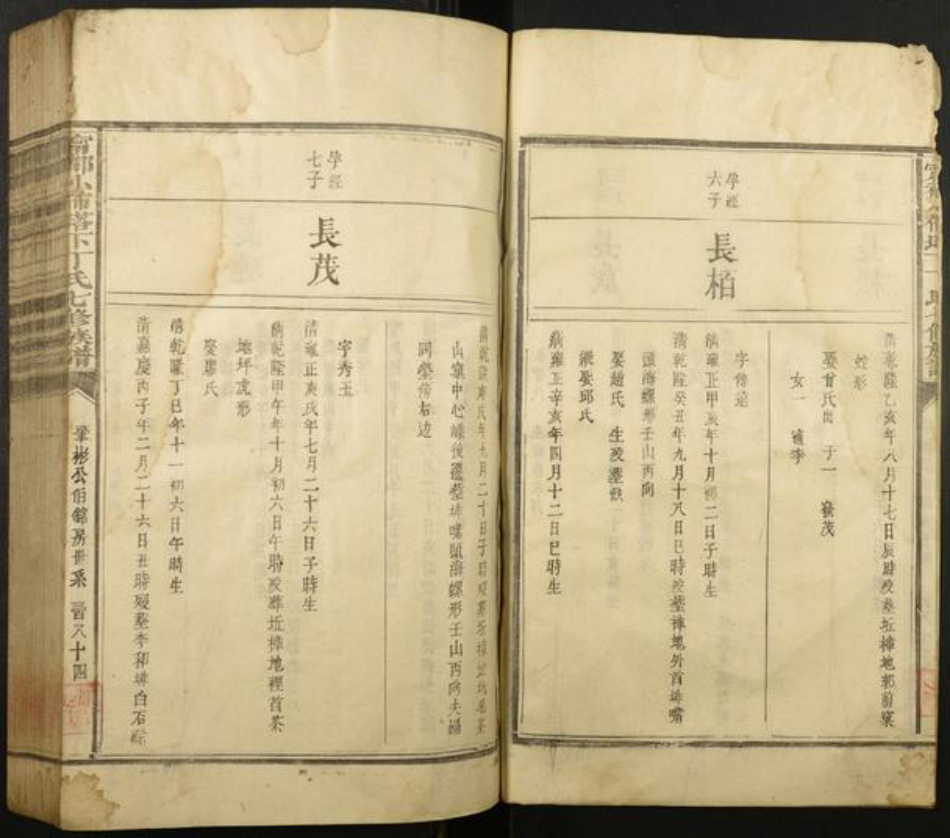 孕經
六子
長栢
清乾隆乙亥年八月十七日辰時歿塟坵樟地郭前窠
蛇形
娶曾氏出 子一 發茂
女一 適李
字傍遠
清雍正甲辰年十月初二日子時生
清乾隆癸丑年九月十八日巳時歿塟樟地外首排嘴
頭海螺形壬山丙向
娶趙氏 生歿塟缺
繼娶邱氏
清雍正辛亥年四月十二日巳時生
孕經
七子
長茂
清乾隆庚戌年九月二十日子時歿塟坵樟
山窠中心峰後遷塟排嘴頭海螺形壬山丙向夫婦
同塋傍右边
字秀玉
清雍正庚戌年七月二十六日子時生
清乾隆甲午年十月初六日午時歿塟坵樟地裡首茶
地坪虎形
娶廖氏
清乾隆丁巳年十一初六日午時生
清嘉慶丙子年二月二十六日丑時歿塟李和排白石
丁氏七修族譜
肇彬公伯錦房世系 晉八十四